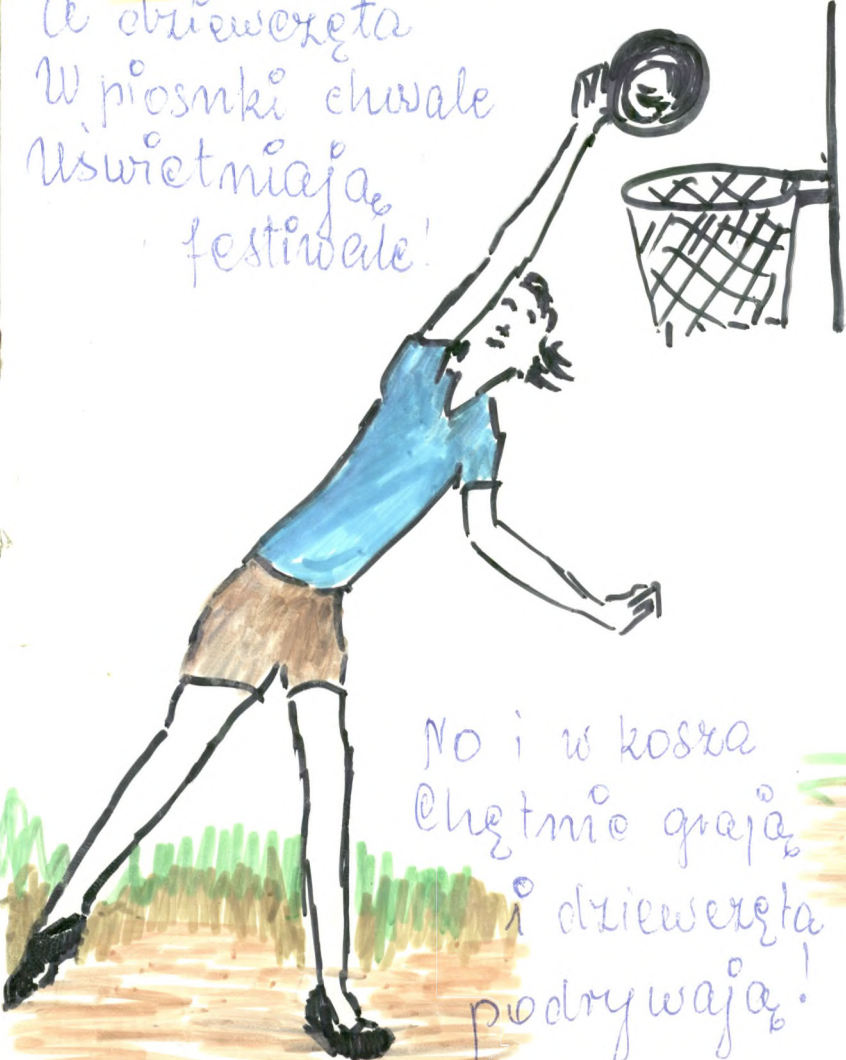 A dziewczęta
W piosnki chwale
Uświetniają
festiwale!
No i w kosza
Chętnie grają
i dziewczęta
podrywają!